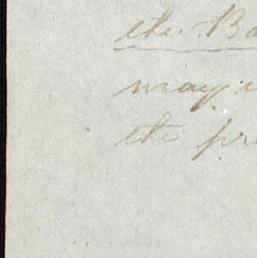 the Ba
may
the pre